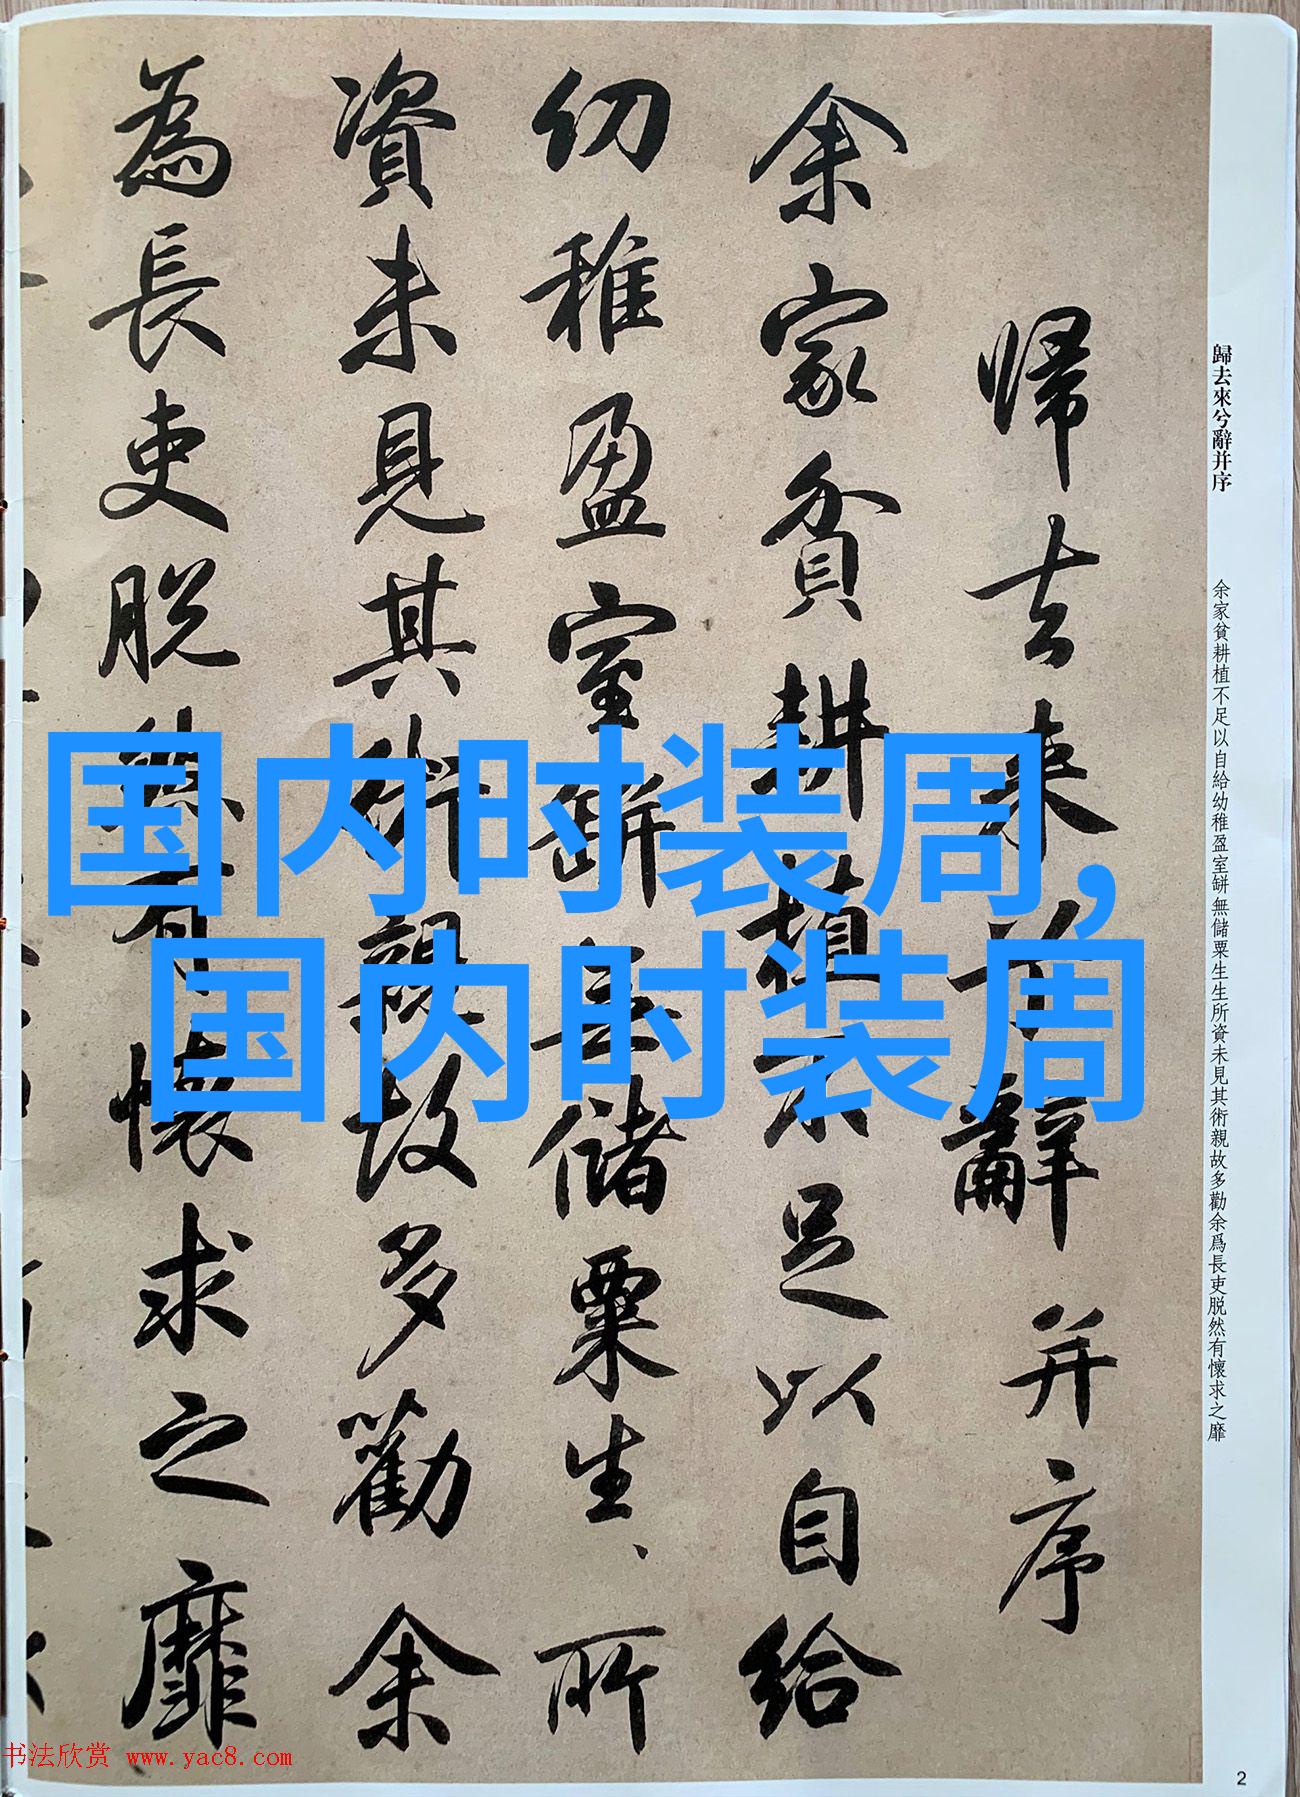 歸去來兮辭并序
余家貧耕植不足以自給幼稚盈室缾無儲粟生生所資未見其術親故多勸余爲長吏脱然有懷求之靡
歸去來兮辭并序
余家貧耕植不足以自給
幼稚盈室缾無儲粟生、所
資未見其術親故多勸余
為長吏脱然有懷求之靡
国内时装周，
国内时装周
书法欣赏 www.yac8.com
2